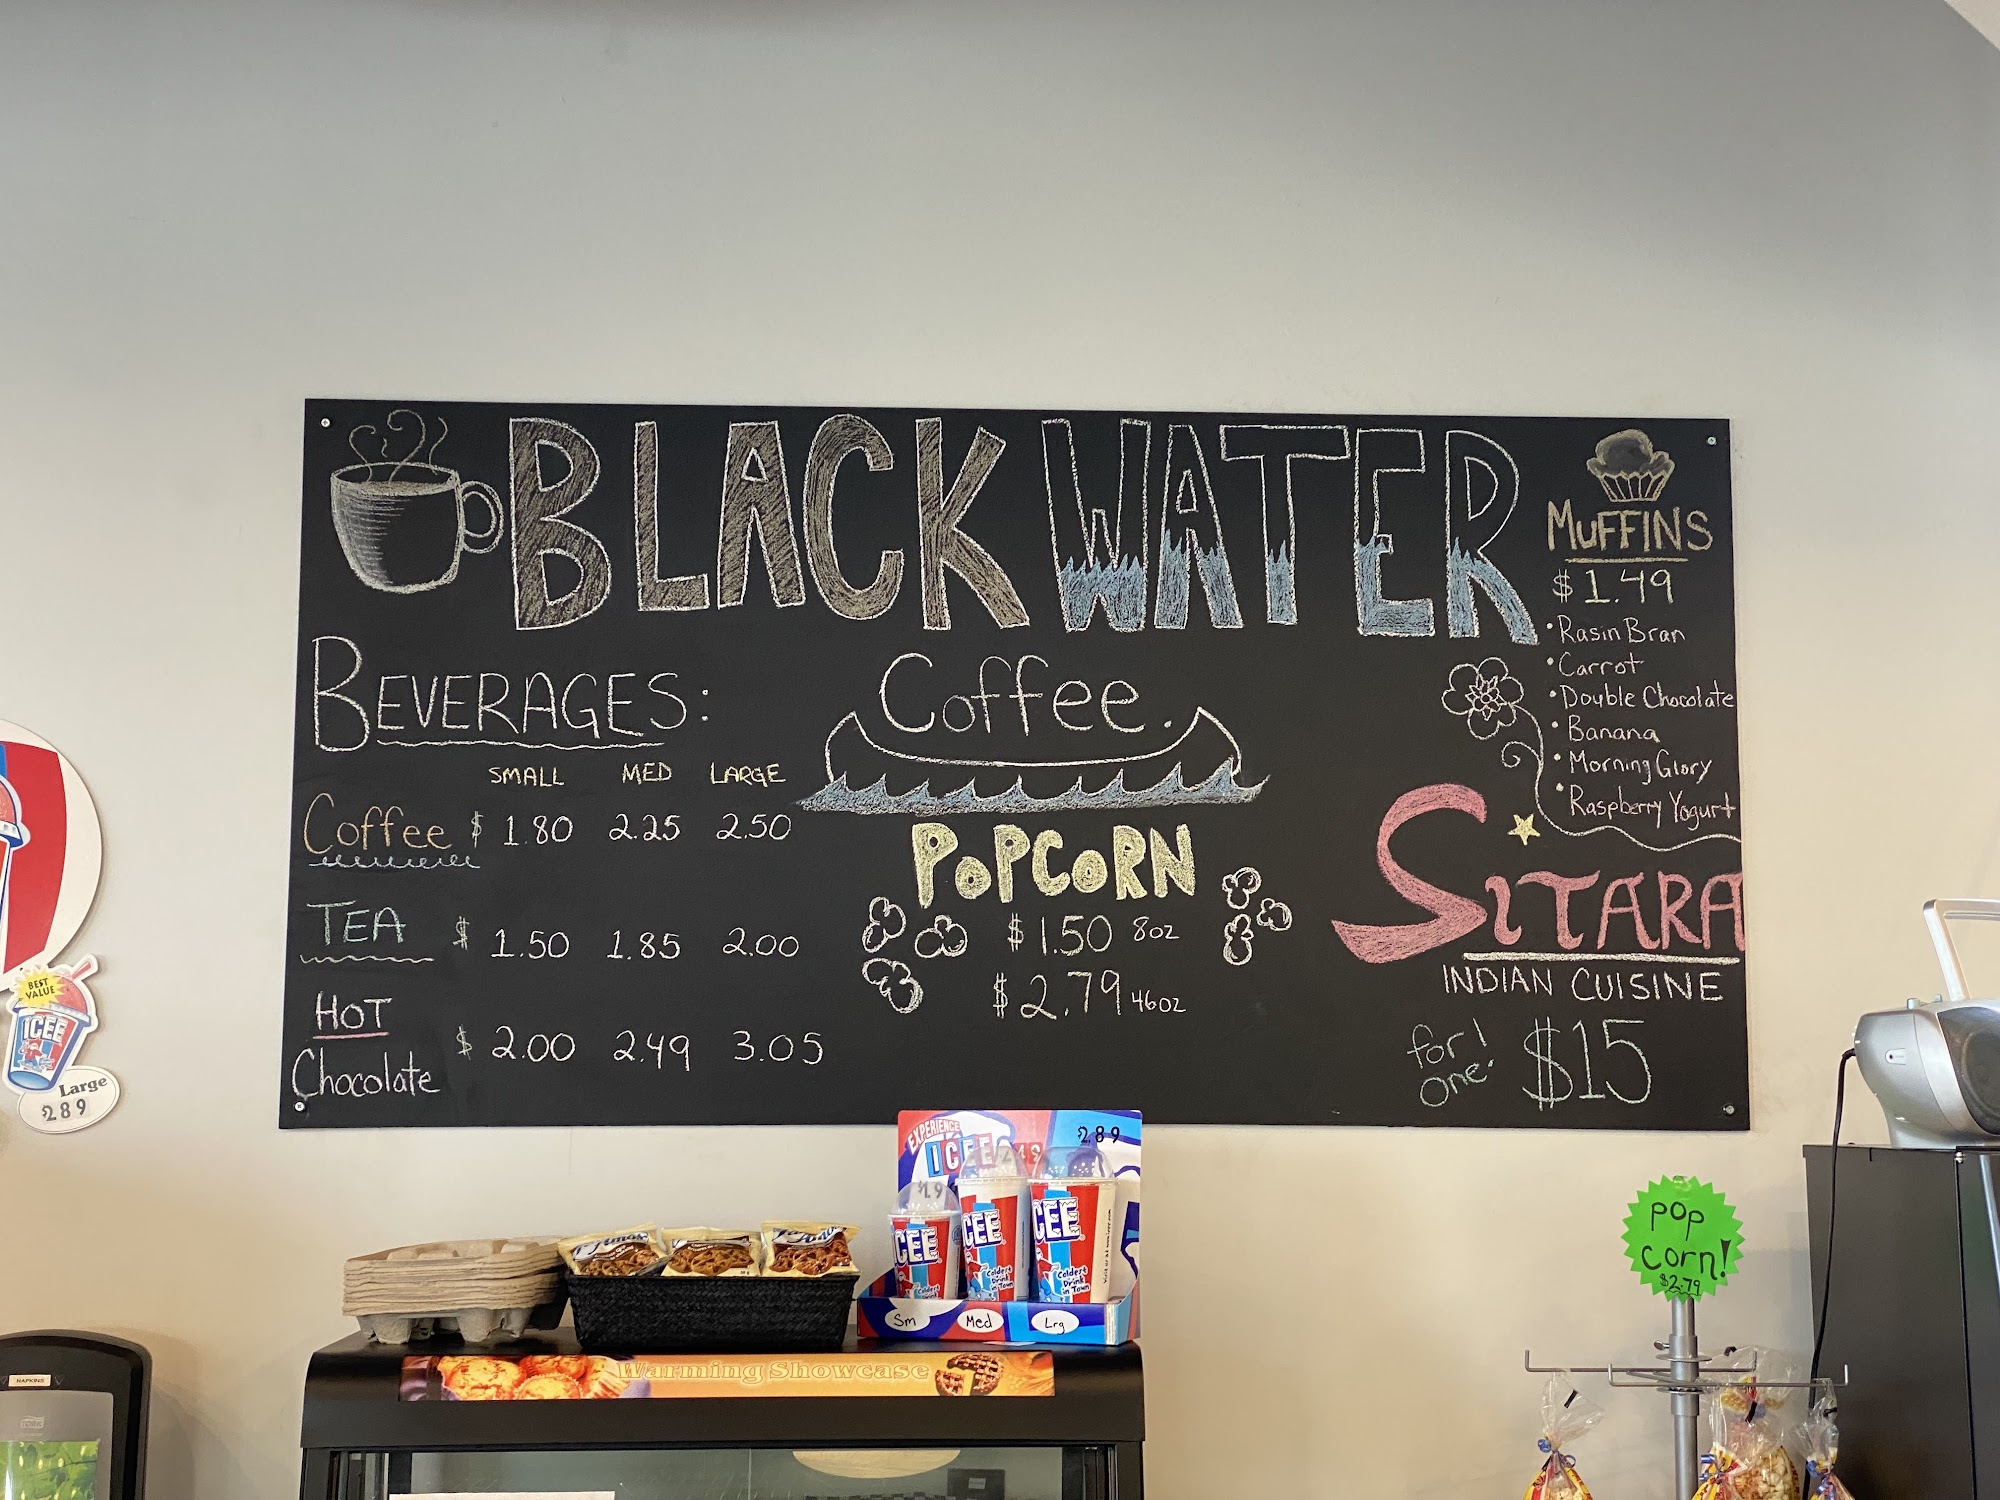 BLACK WATER
Coffee.
BEVERAGES:
SMALL MED LARGE
Coffee $ 1.80 2.25 2.50
TEA $ 1.50 1.85 2.00
HOT
Chocolate $ 2.00 2.49 3.05
POPCORN
$1.50 8oz
$2.79 46oz
MUFFINS
$1.49
• Rasin Bran
• Carrot
• Double Chocolate
• Banana
• Morning Glory
• Raspberry Yogurt
SITARA
INDIAN CUISINE
for 1
one. $15
BEST
VALUE
ICEE
Large
$2.89
EXPERIENCE
ICEE
$2.89
ICEE
ICEE
ICEE
Coldest
Drink
in Town
Coldest
Drink
in Town
Sm Med Lrg
Warming Showcase
POP
corn!
$2.79
NAPKINS
TORK